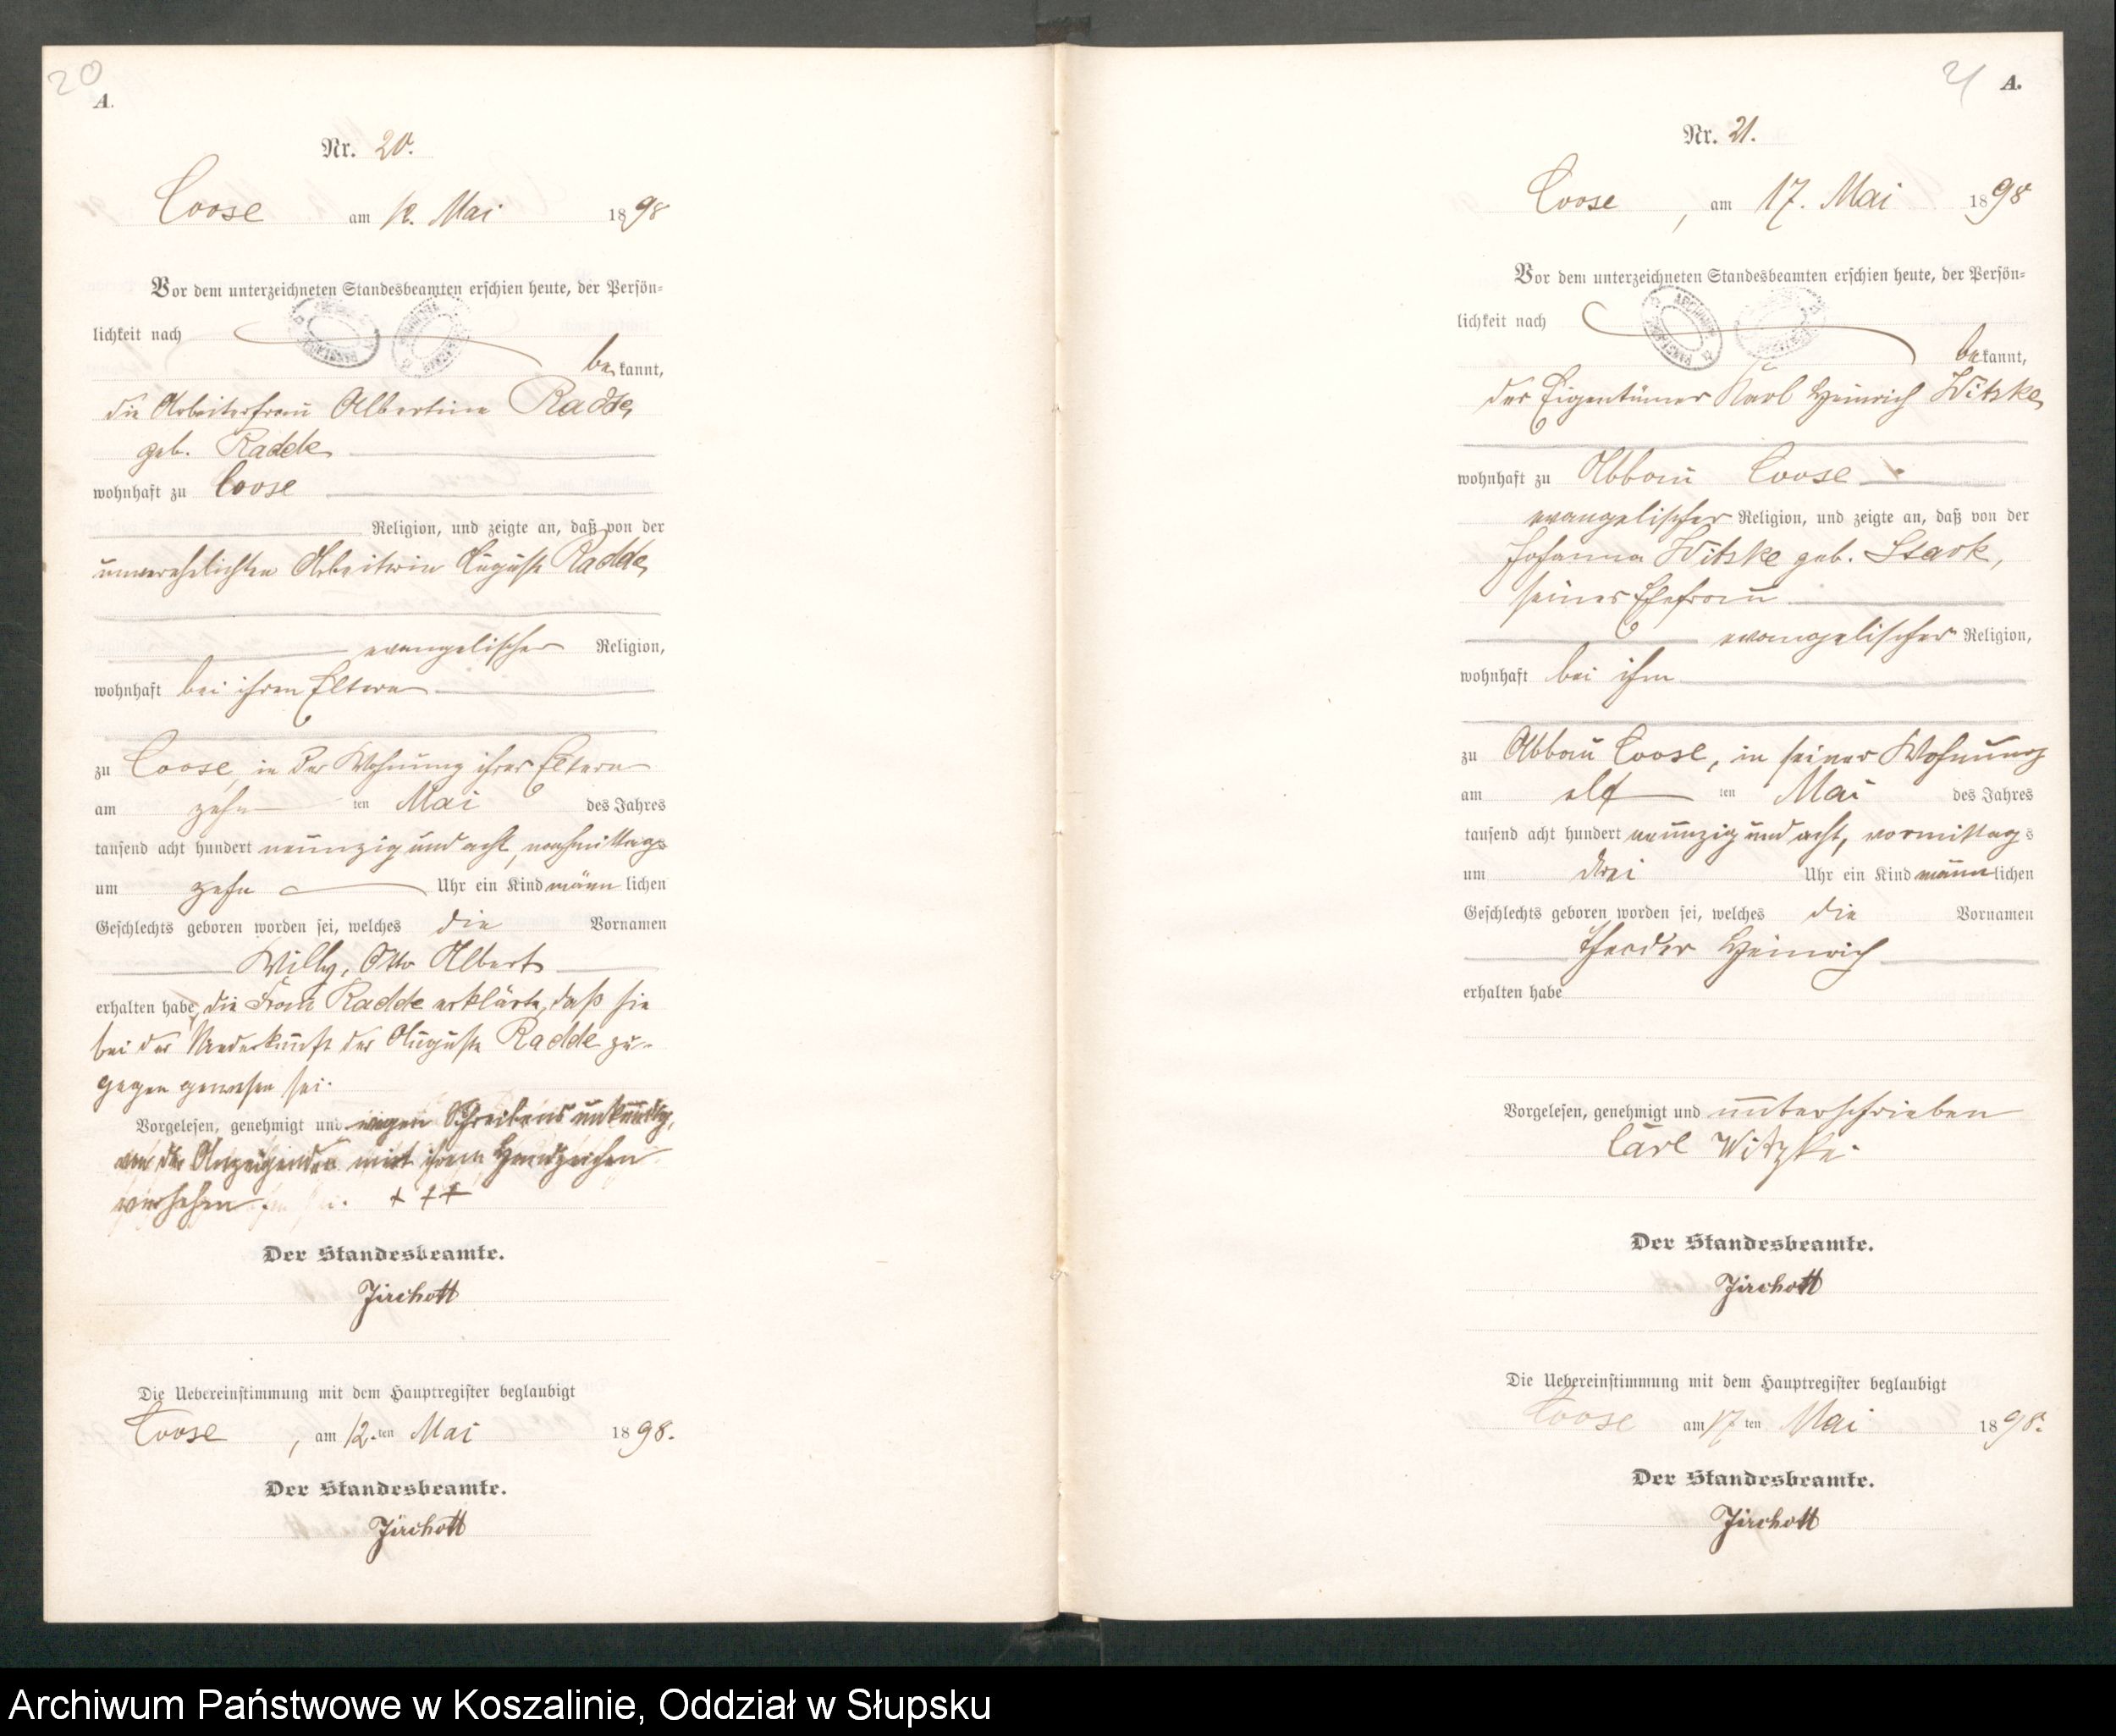 20
A.
Nr. 20.
Coose am 12. Mai 1898
Vor dem unterzeichneten Standesbeamten erschien heute, der Persön-
lichkeit nach
bekannt,
die Arbeiterfrau Albertine Radde,
geb. Radde
wohnhaft zu Coose
Religion, und zeigte an, daß von der
unverehelichten Arbeiterin Auguste Radde,
evangelischer Religion,
wohnhaft bei ihren Eltern
zu Coose, in der Wohnung ihrer Eltern
am zehn ten Mai des Jahres
tausend acht hundert neunzig und acht, nachmittags
um zehn Uhr ein Kind männlichen
Geschlechts geboren worden sei, welches die Vornamen
Willy, Otto Albert
erhalten habe, die Frau Radde erklärte, daß sie
bei der Niederkunft der Auguste Radde zu-
gegen gewesen sei.
Vorgelesen, genehmigt und wegen Schreibens unkundig,
von der Anzeigenden mit ihrem Handzeichen
versehen. + + +
Der Standesbeamte.
Jirchott
Die Uebereinstimmung mit dem Hauptregister beglaubigt
Coose, am 12.ten Mai 1898.
Der Standesbeamte.
Jirchott
21
A.
Nr. 21.
Coose, am 17. Mai 1898
Vor dem unterzeichneten Standesbeamten erschien heute, der Persön-
lichkeit nach
bekannt,
der Eigentümer Karl Heinrich Witzke,
wohnhaft zu Abbau Coose
evangelischer Religion, und zeigte an, daß von der
Johanna Witzke geb. Stark,
seiner Ehefrau
evangelischer Religion,
wohnhaft bei ihm
zu Abbau Coose, in seiner Wohnung
am elf ten Mai des Jahres
tausend acht hundert neunzig und acht, vormittags
um drei Uhr ein Kind männlichen
Geschlechts geboren worden sei, welches die Vornamen
Theodor Heinrich
erhalten habe
Vorgelesen, genehmigt und unterschrieben
Carl Witzke.
Der Standesbeamte.
Jirchott
Die Uebereinstimmung mit dem Hauptregister beglaubigt
Coose am 17 ten Mai 1898.
Der Standesbeamte.
Jirchott
Archiwum Państwowe w Koszalinie, Oddział w Słupsku